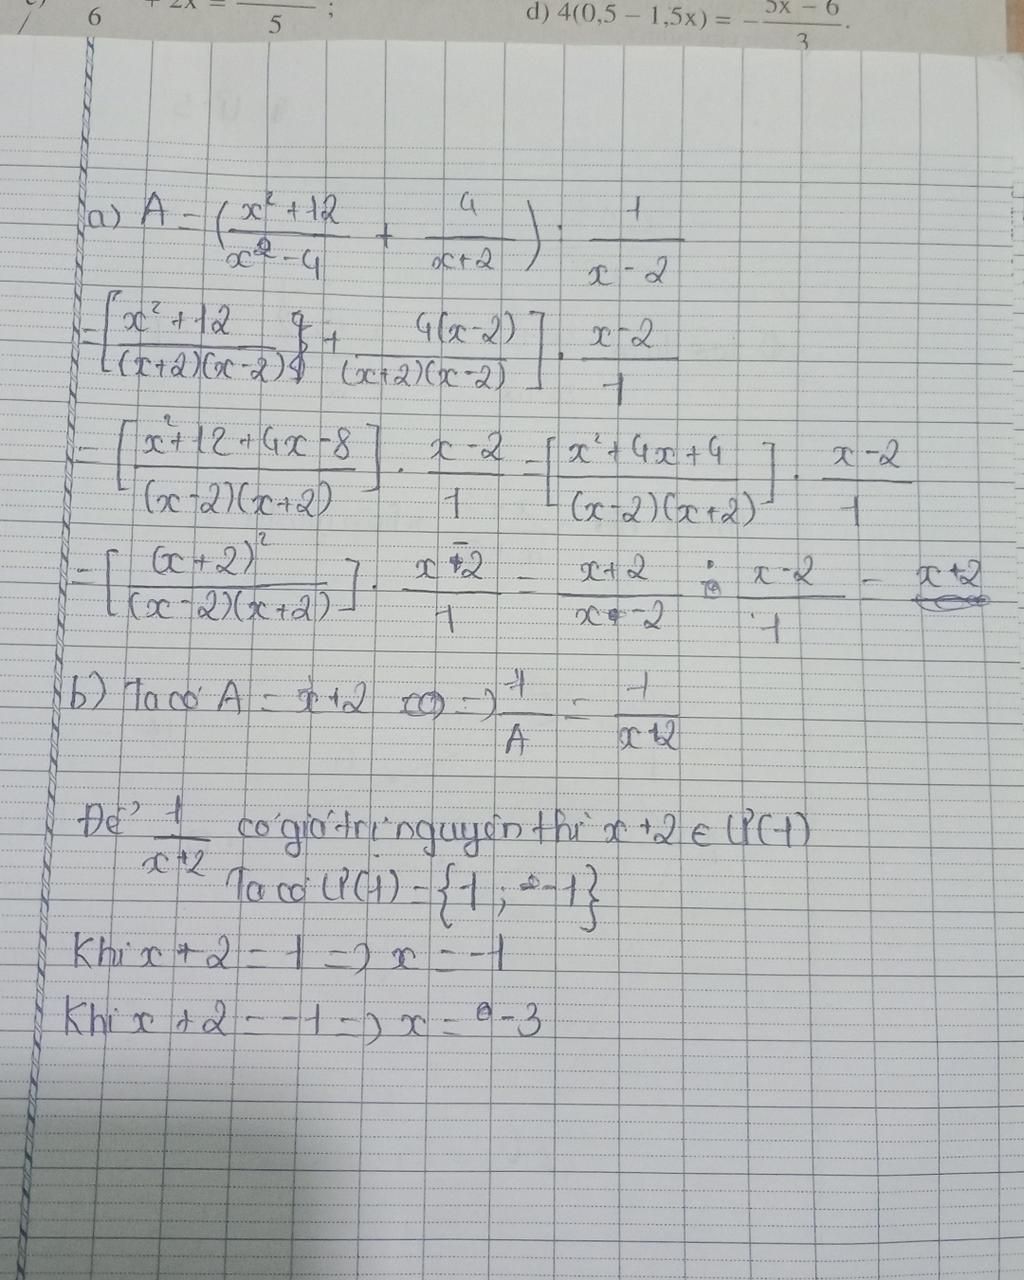 6 + 2x = 5 ;
d) 4(0,5 – 1,5x) = – 5x – 6 / 3 .
a) A = ( x² + 12 / x² - 4 + 4 / x+2 ) : 1 / x - 2
= [ x² + 12 / (x+2)(x-2) + 4(x-2) / (x+2)(x-2) ] . x-2 / 1
= [ x² + 12 + 4x - 8 / (x-2)(x+2) ] . x-2 / 1 = [ x² + 4x + 4 / (x-2)(x+2) ] . x-2 / 1
= [ (x+2)² / (x-2)(x+2) ] . x-2 / 1 = x+2 / x-2 . x-2 / 1 = x+2
b) Ta có A = x+2 => 1 / A = 1 / x+2
Để 1 / x+2 có giá trị nguyên thì x+2 ∈ Ư(1)
Ta có Ư(1) = {1 ; -1}
Khi x + 2 = 1 => x = -1
Khi x + 2 = -1 => x = -3